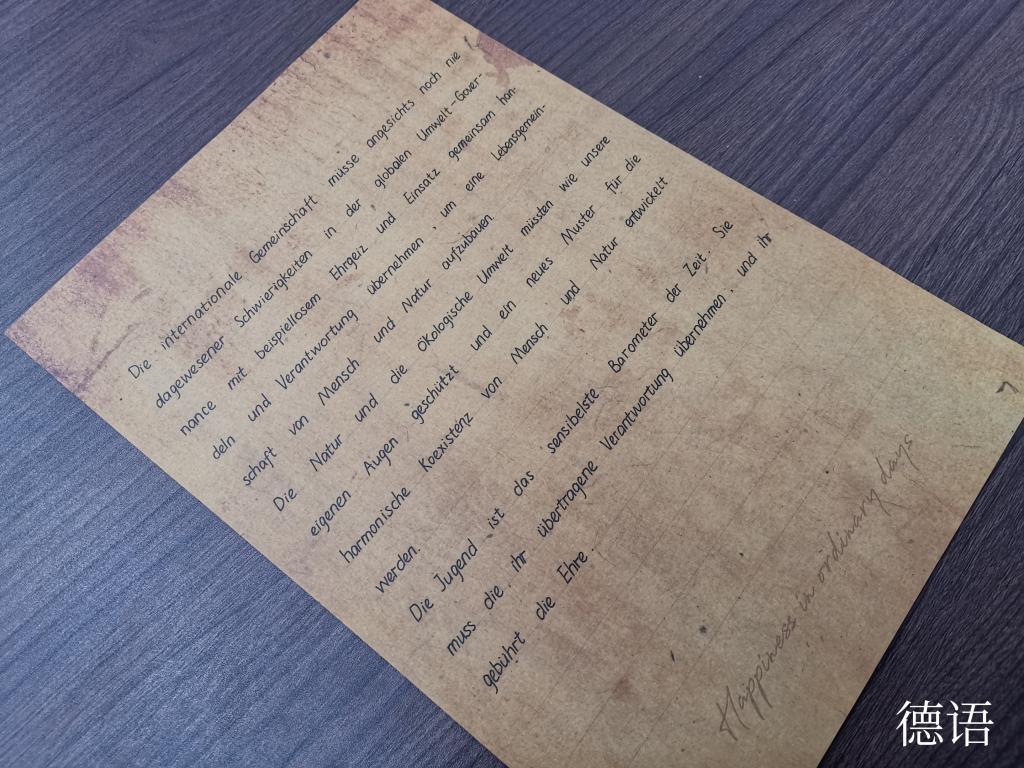 Die internationale Gemeinschaft müsse angesichts noch nie
dagewesener Schwierigkeiten in der globalen Umwelt-Gover-
nance mit beispiellosem Ehrgeiz und Einsatz gemeinsam han-
deln und Verantwortung übernehmen, um eine Lebensgemein-
schaft von Mensch und Natur aufzubauen.
Die Natur und die ökologische Umwelt müssten wie unsere
eigenen Augen geschützt und ein neues Muster für die
harmonische Koexistenz von Mensch und Natur entwickelt
werden.
Die Jugend ist das sensibelste Barometer der Zeit. Sie
muss die ihr übertragene Verantwortung übernehmen, und ihr
gebührt die Ehre.
Happiness in ordinary days
德语